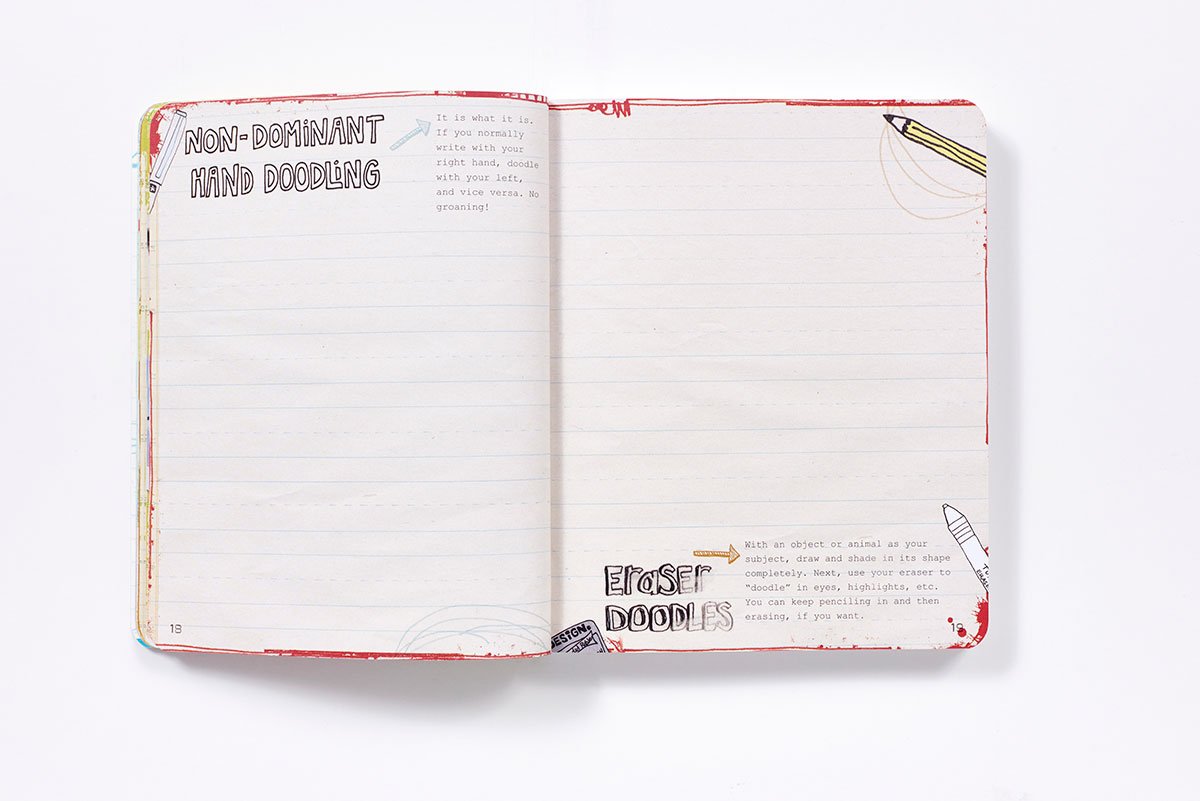 NON-DOMINANT
HAND DOODLING
It is what it is.
If you normally
write with your
right hand, doodle
with your left,
and vice versa. No
groaning!
18
ERASER
DOODLES
With an object or animal as your
subject, draw and shade in its shape
completely. Next, use your eraser to
"doodle" in eyes, highlights, etc.
You can keep penciling in and then
erasing, if you want.
DESIGN.
19